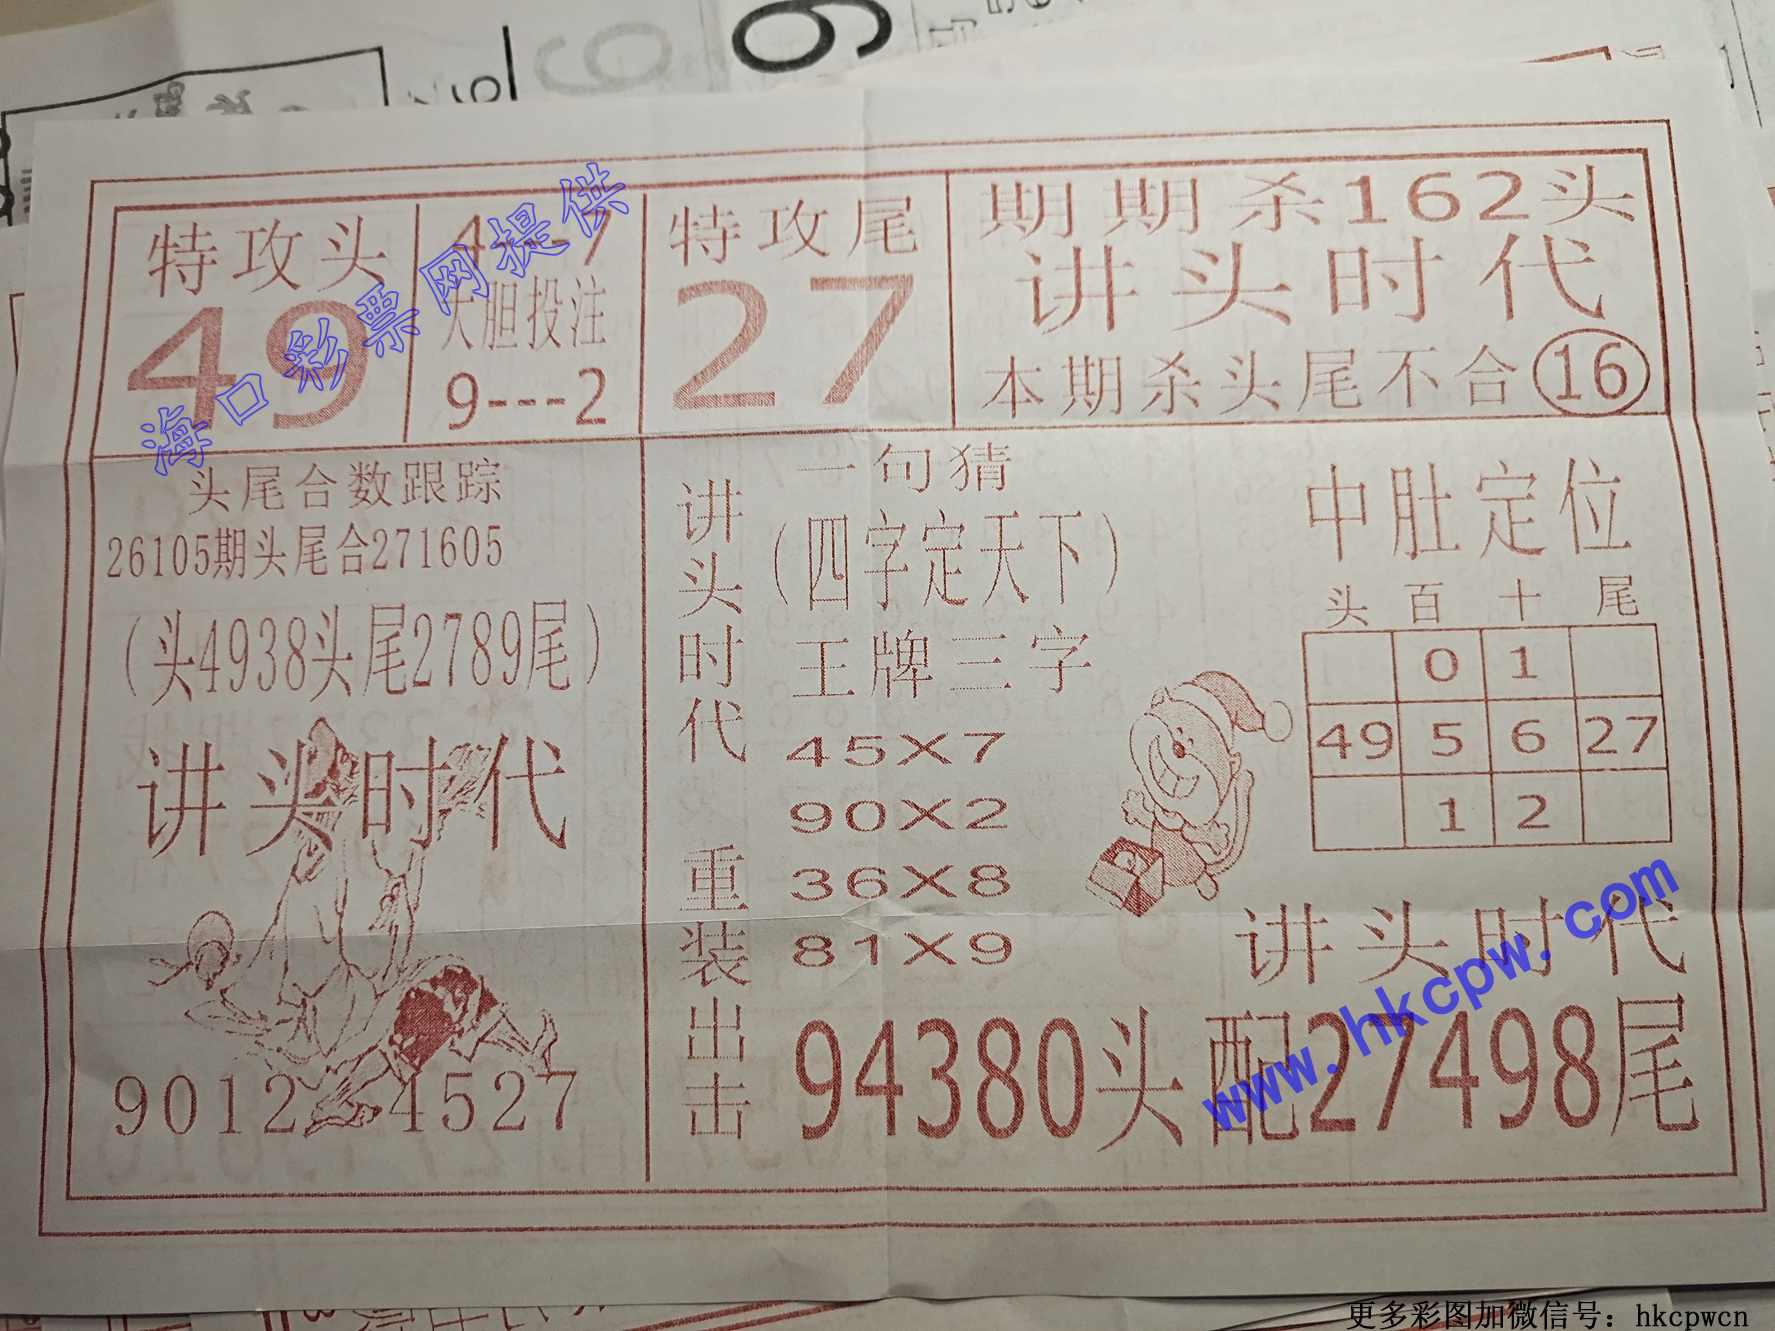 特攻头
49
4---7
大胆投注
9---2
特攻尾
27
期期杀162头
讲头时代
本期杀头尾不合16
头尾合数跟踪
26105期头尾合271605
（头4938头尾2789尾）
讲头时代
9012 4527
讲头时代重装出击
一句猜
（四字定天下）
王牌三字
45X7
90X2
36X8
81X9
中肚定位
头 百 十 尾
0 1
49 5 6 27
1 2
讲头时代
94380头 配27498尾
海口彩票网提供
www.hkcpw.com
更多彩图加微信号：hkcpwcn